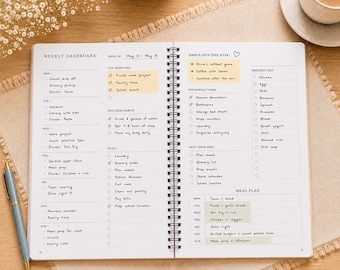 WEEKLY DASHBOARD
WEEK OF May 12 - May 18
TOP PRIORITIES
Finish work project
Family time
School event
MON
School drop off
Grocery pickup
Dinner: Tacos
TUE
Workout
Library with kids
Dinner: Pasta
WED
Work project
Soccer practice
THU
Meal prep
Dinner: Chicken + rice
FRI
Team meeting
Date night
SAT
Farmers market
Family time
SUN
Church
Family walk
WELLNESS HABITS
Drink 8 glasses of water
Get 7-8 hours of sleep
Move my body daily
TO-DO
Laundry
Grocery order
Plan meals
Return Amazon
Call mom
Clean out pantry
Pay bills
Prep school lunches
SIMPLE JOYS THIS WEEK
Coffee with Sarah
Sunshine after the rain
HOUSEHOLD TASKS
Vacuum downstairs
Bathrooms
Change bed sheets
Wipe counters
Laundry
Organize entryway
NEXT WEEK PREP
Meal planning
Grocery list
Prep snacks
Check calendar
School lunches
GROCERY LIST
Chicken
Eggs
Milk
Rice
Bananas
Bread
Greek yogurt
Oats
Almond milk
Spinach
Cheese
MEAL PLAN
MON Tacos + salad
TUE Pasta + garlic bread
WED Stir fry + rice
THU Chicken + veggies
FRI Date night
SAT Grilled burgers + sweet potato fries
SUN Meal prep + leftovers